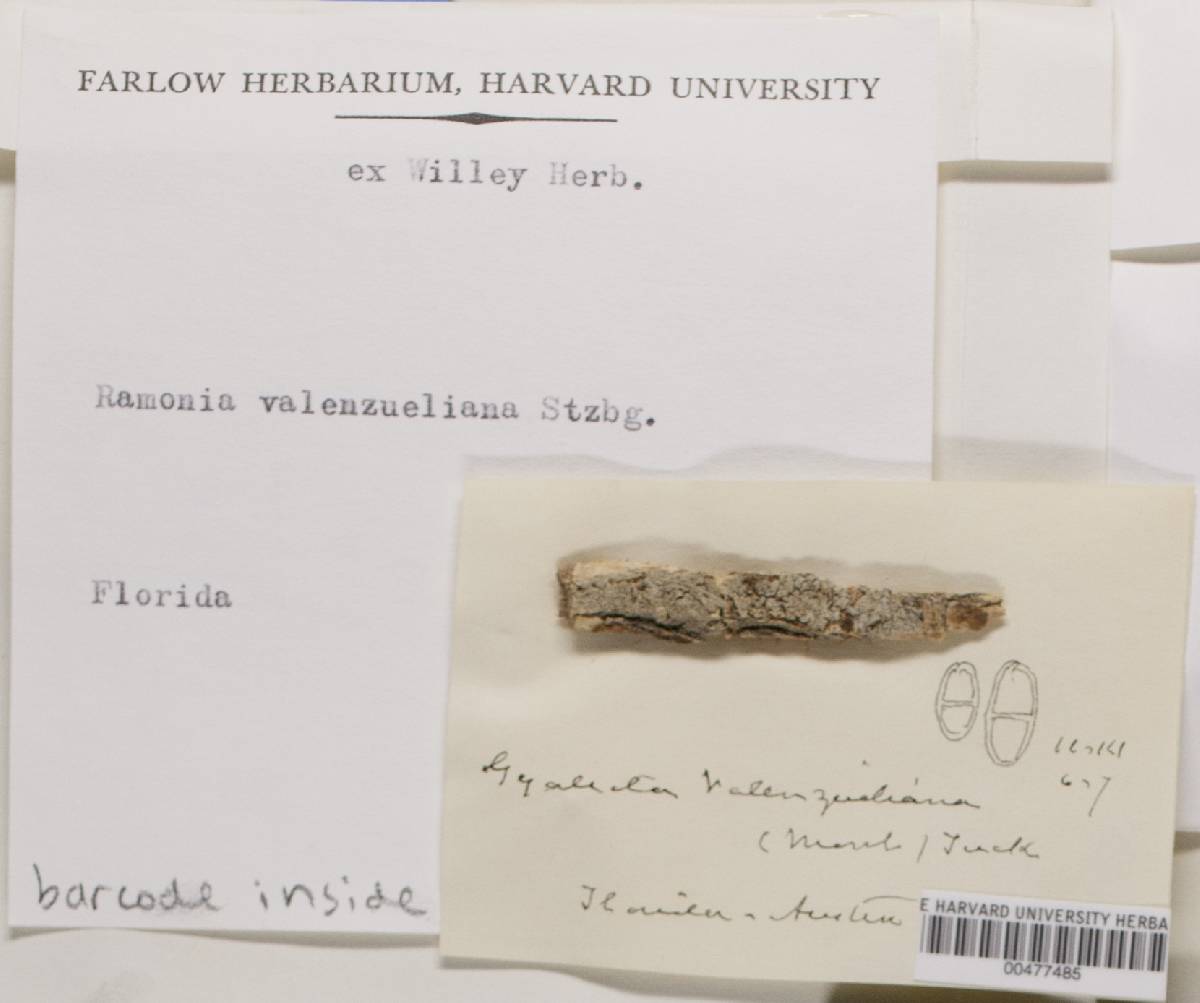 FARLOW HERBARIUM, HARVARD UNIVERSITY
ex Willey Herb.
Ramonia valenzueliana Stzbg.
Florida
barcode inside
Gyalecta Valenzueliana
(Mont) Tuck
Florida - Austin
E HARVARD UNIVERSITY HERBA
00477485